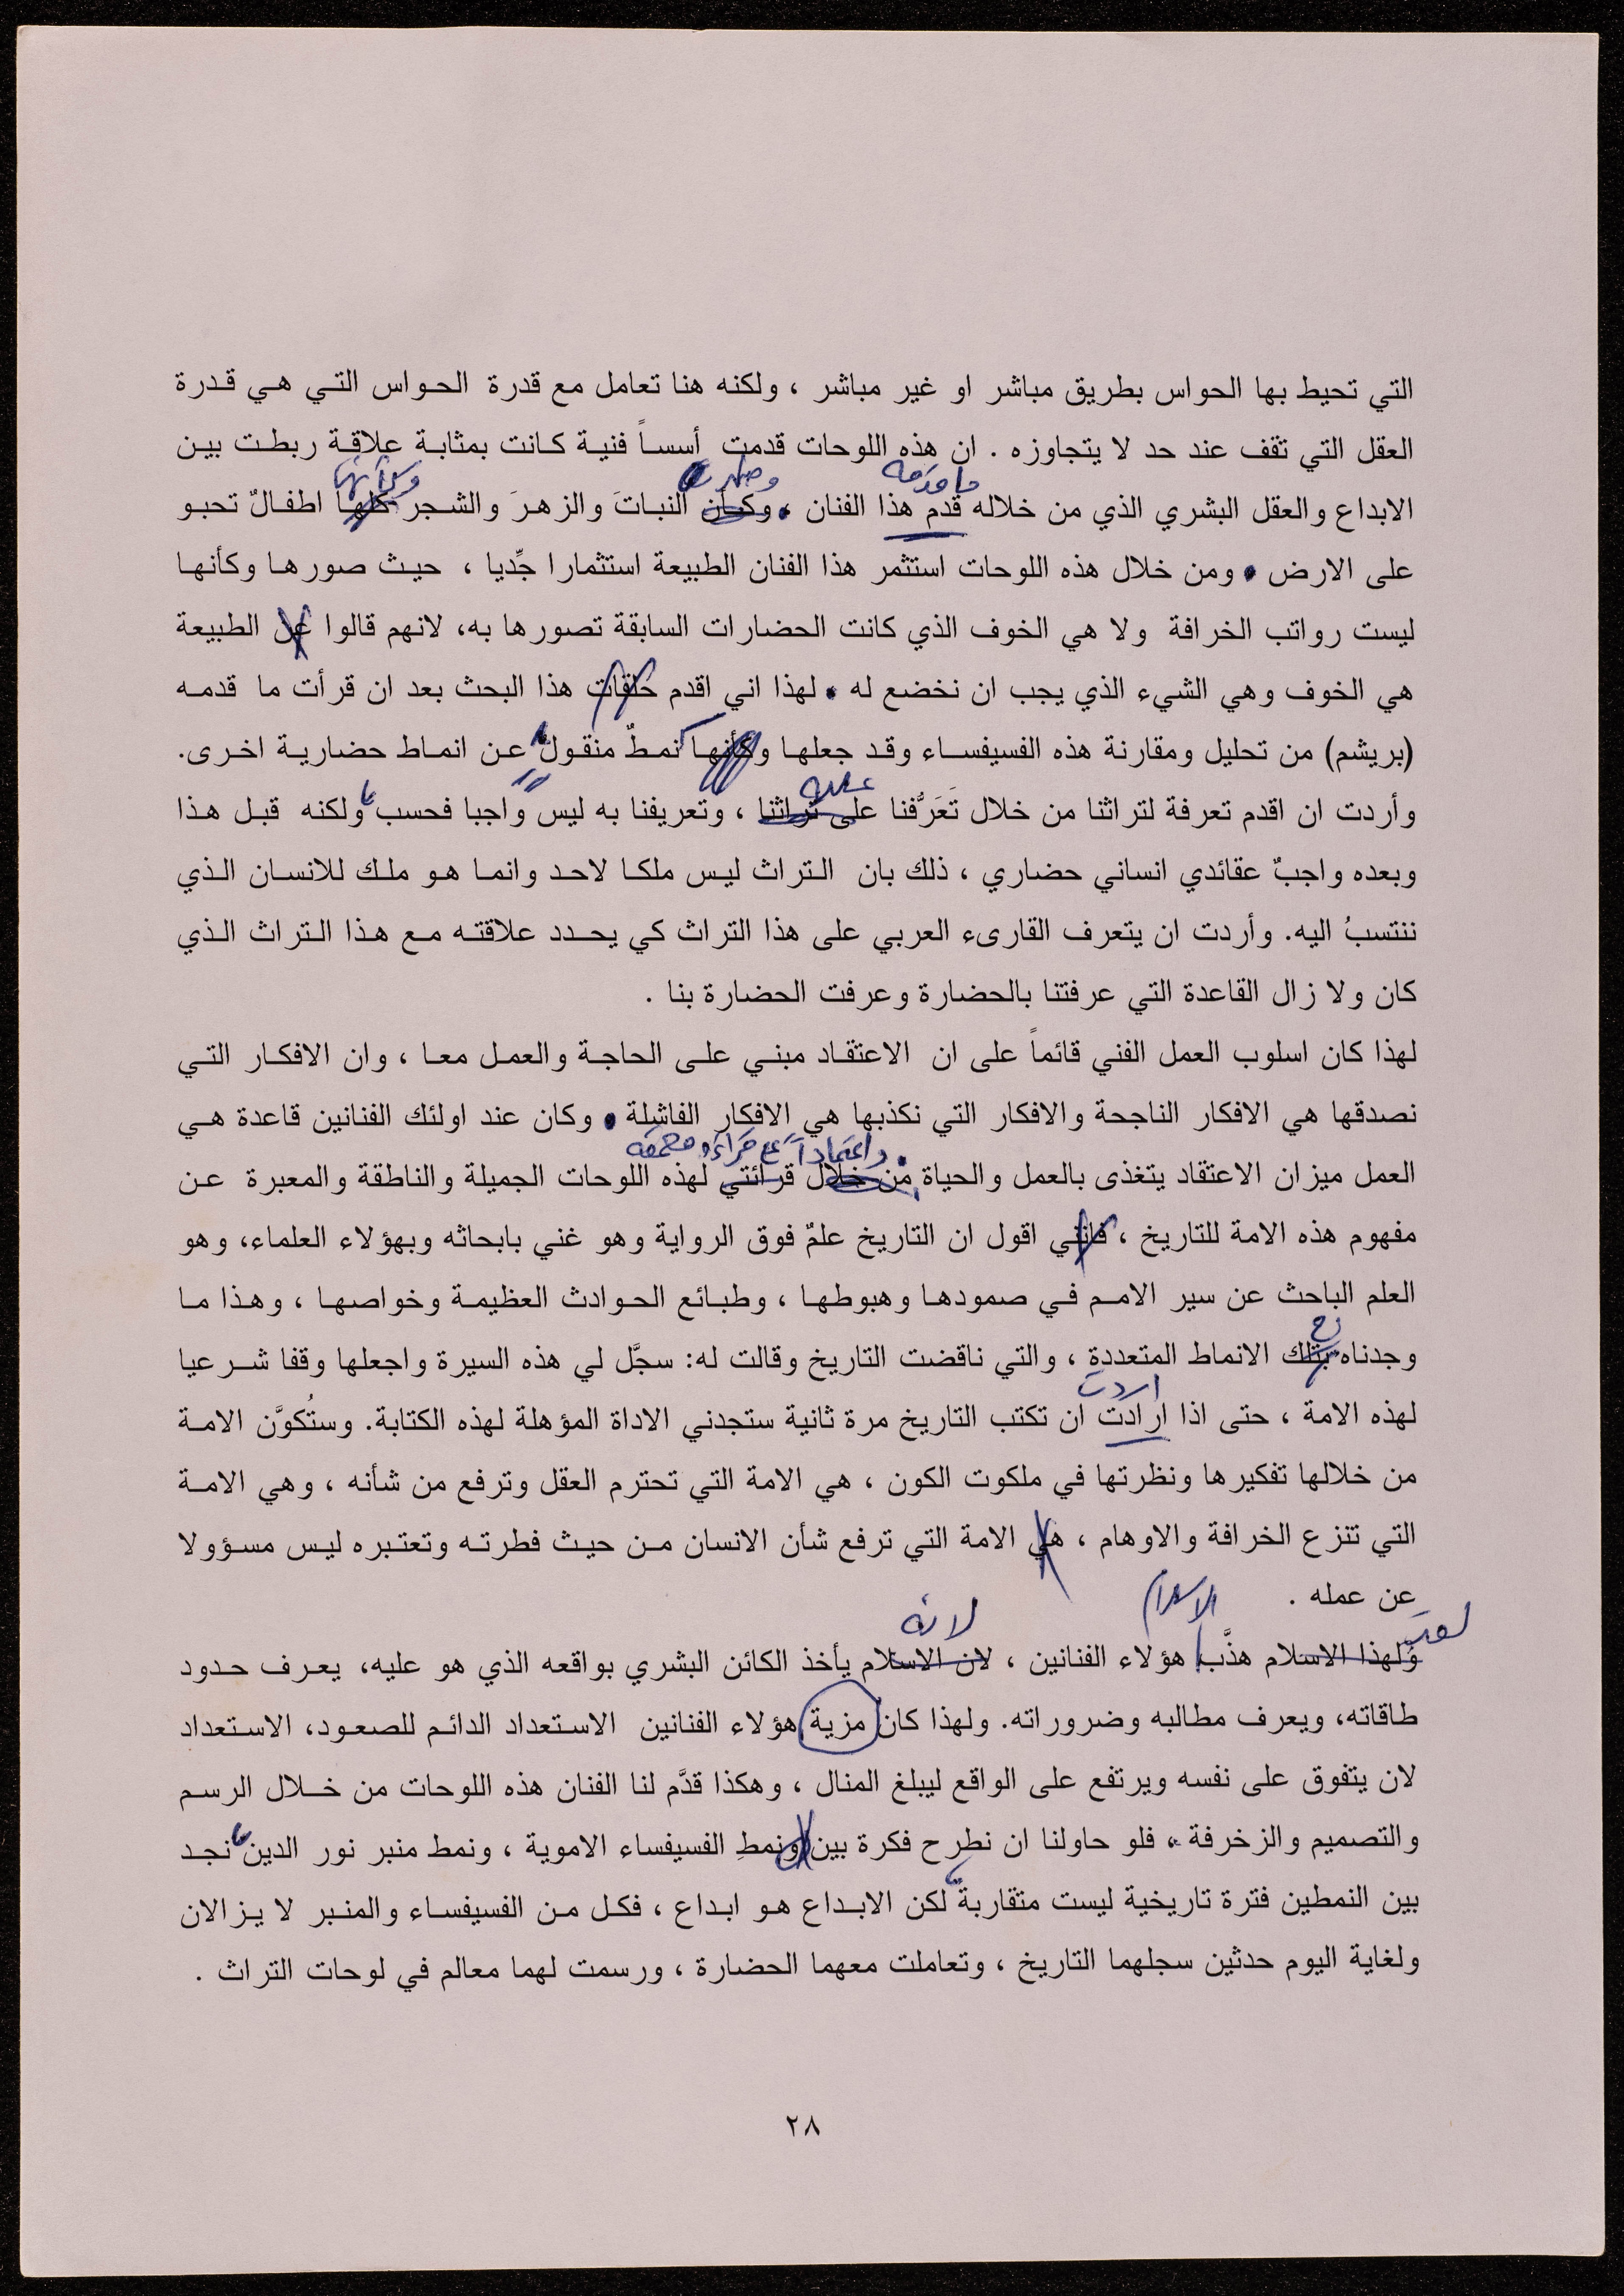 التي تحيط بها الحواس بطريق مباشر او غير مباشر ، ولكنه هنا تعامل مع قدرة الحواس التي هي قدرة
العقل التي تقف عند حد لا يتجاوزه . ان هذه اللوحات قدمت أسساً فنية كانت بمثابة علاقة ربطت بين
ما قدمه وكأنها
الابداع والعقل البشري الذي من خلاله قدم هذا الفنان ، وكأن النباتَ والزهرَ والشجر كلها اطفالٌ تحبو
على الارض . ومن خلال هذه اللوحات استثمر هذا الفنان الطبيعة استثمارا جِّديا ، حيث صورها وكأنها
ليست رواتب الخرافة ولا هي الخوف الذي كانت الحضارات السابقة تصورها به، لانهم قالوا عن الطبيعة
هي الخوف وهي الشيء الذي يجب ان نخضع له . لهذا اني اقدم حلقات هذا البحث بعد ان قرأت ما قدمه
(بريشم) من تحليل ومقارنة هذه الفسيفساء وقد جعلها وكأنها نمطٌ منقول عن انماط حضارية اخرى.
عليه
وأردت ان اقدم تعرفة لتراثنا من خلال تَعَرُّفنا على تراثنا ، وتعريفنا به ليس واجبا فحسب ولكنه قبل هذا
وبعده واجبٌ عقائدي انساني حضاري ، ذلك بان التراث ليس ملكا لاحد وانما هو ملك للانسان الذي
ننتسبُ اليه. وأردت ان يتعرف القارىء العربي على هذا التراث كي يحدد علاقته مع هذا التراث الذي
كان ولا زال القاعدة التي عرفتنا بالحضارة وعرفت الحضارة بنا .
لهذا كان اسلوب العمل الفني قائماً على ان الاعتقاد مبني على الحاجة والعمل معا ، وان الافكار التي
نصدقها هي الافكار الناجحة والافكار التي نكذبها هي الافكار الفاشلة . وكان عند اولئك الفنانين قاعدة هي
واعتماداً على قراءة معمقة
العمل ميزان الاعتقاد يتغذى بالعمل والحياة من خلال قرائتي لهذه اللوحات الجميلة والناطقة والمعبرة عن
مفهوم هذه الامة للتاريخ ، فانني اقول ان التاريخ علمٌ فوق الرواية وهو غني بابحاثه وبهؤلاء العلماء، وهو
العلم الباحث عن سير الامم في صمودها وهبوطها ، وطبائع الحوادث العظيمة وخواصها ، وهذا ما
وجدناه بتلك الانماط المتعددة ، والتي ناقضت التاريخ وقالت له: سجَّل لي هذه السيرة واجعلها وقفا شرعيا
اردت
لهذه الامة ، حتى اذا ارادت ان تكتب التاريخ مرة ثانية ستجدني الاداة المؤهلة لهذه الكتابة. وستُكوَّن الامة
من خلالها تفكيرها ونظرتها في ملكوت الكون ، هي الامة التي تحترم العقل وترفع من شأنه ، وهي الامة
التي تنزع الخرافة والاوهام ، هي الامة التي ترفع شأن الانسان من حيث فطرته وتعتبره ليس مسؤولا
عن عمله .
لقد الاسلام لانه
ولهذا الاسلام هذَّب هؤلاء الفنانين ، لان الاسلام يأخذ الكائن البشري بواقعه الذي هو عليه، يعرف حدود
طاقاته، ويعرف مطالبه وضروراته. ولهذا كان مزية هؤلاء الفنانين الاستعداد الدائم للصعود، الاستعداد
لان يتفوق على نفسه ويرتفع على الواقع ليبلغ المنال ، وهكذا قدَّم لنا الفنان هذه اللوحات من خلال الرسم
والتصميم والزخرفة ، فلو حاولنا ان نطرح فكرة بين ونمطِ الفسيفساء الاموية ، ونمط منبر نور الدين نجد
بين النمطين فترة تاريخية ليست متقاربة لكن الابداع هو ابداع ، فكل من الفسيفساء والمنبر لا يزالان
ولغاية اليوم حدثين سجلهما التاريخ ، وتعاملت معهما الحضارة ، ورسمت لهما معالم في لوحات التراث .
٢٨